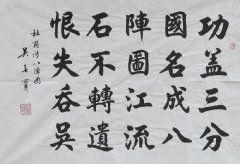 功盖三分
國名成八
陣圖江流
石不轉遺
恨失吞吴
杜甫诗八陣图
吴